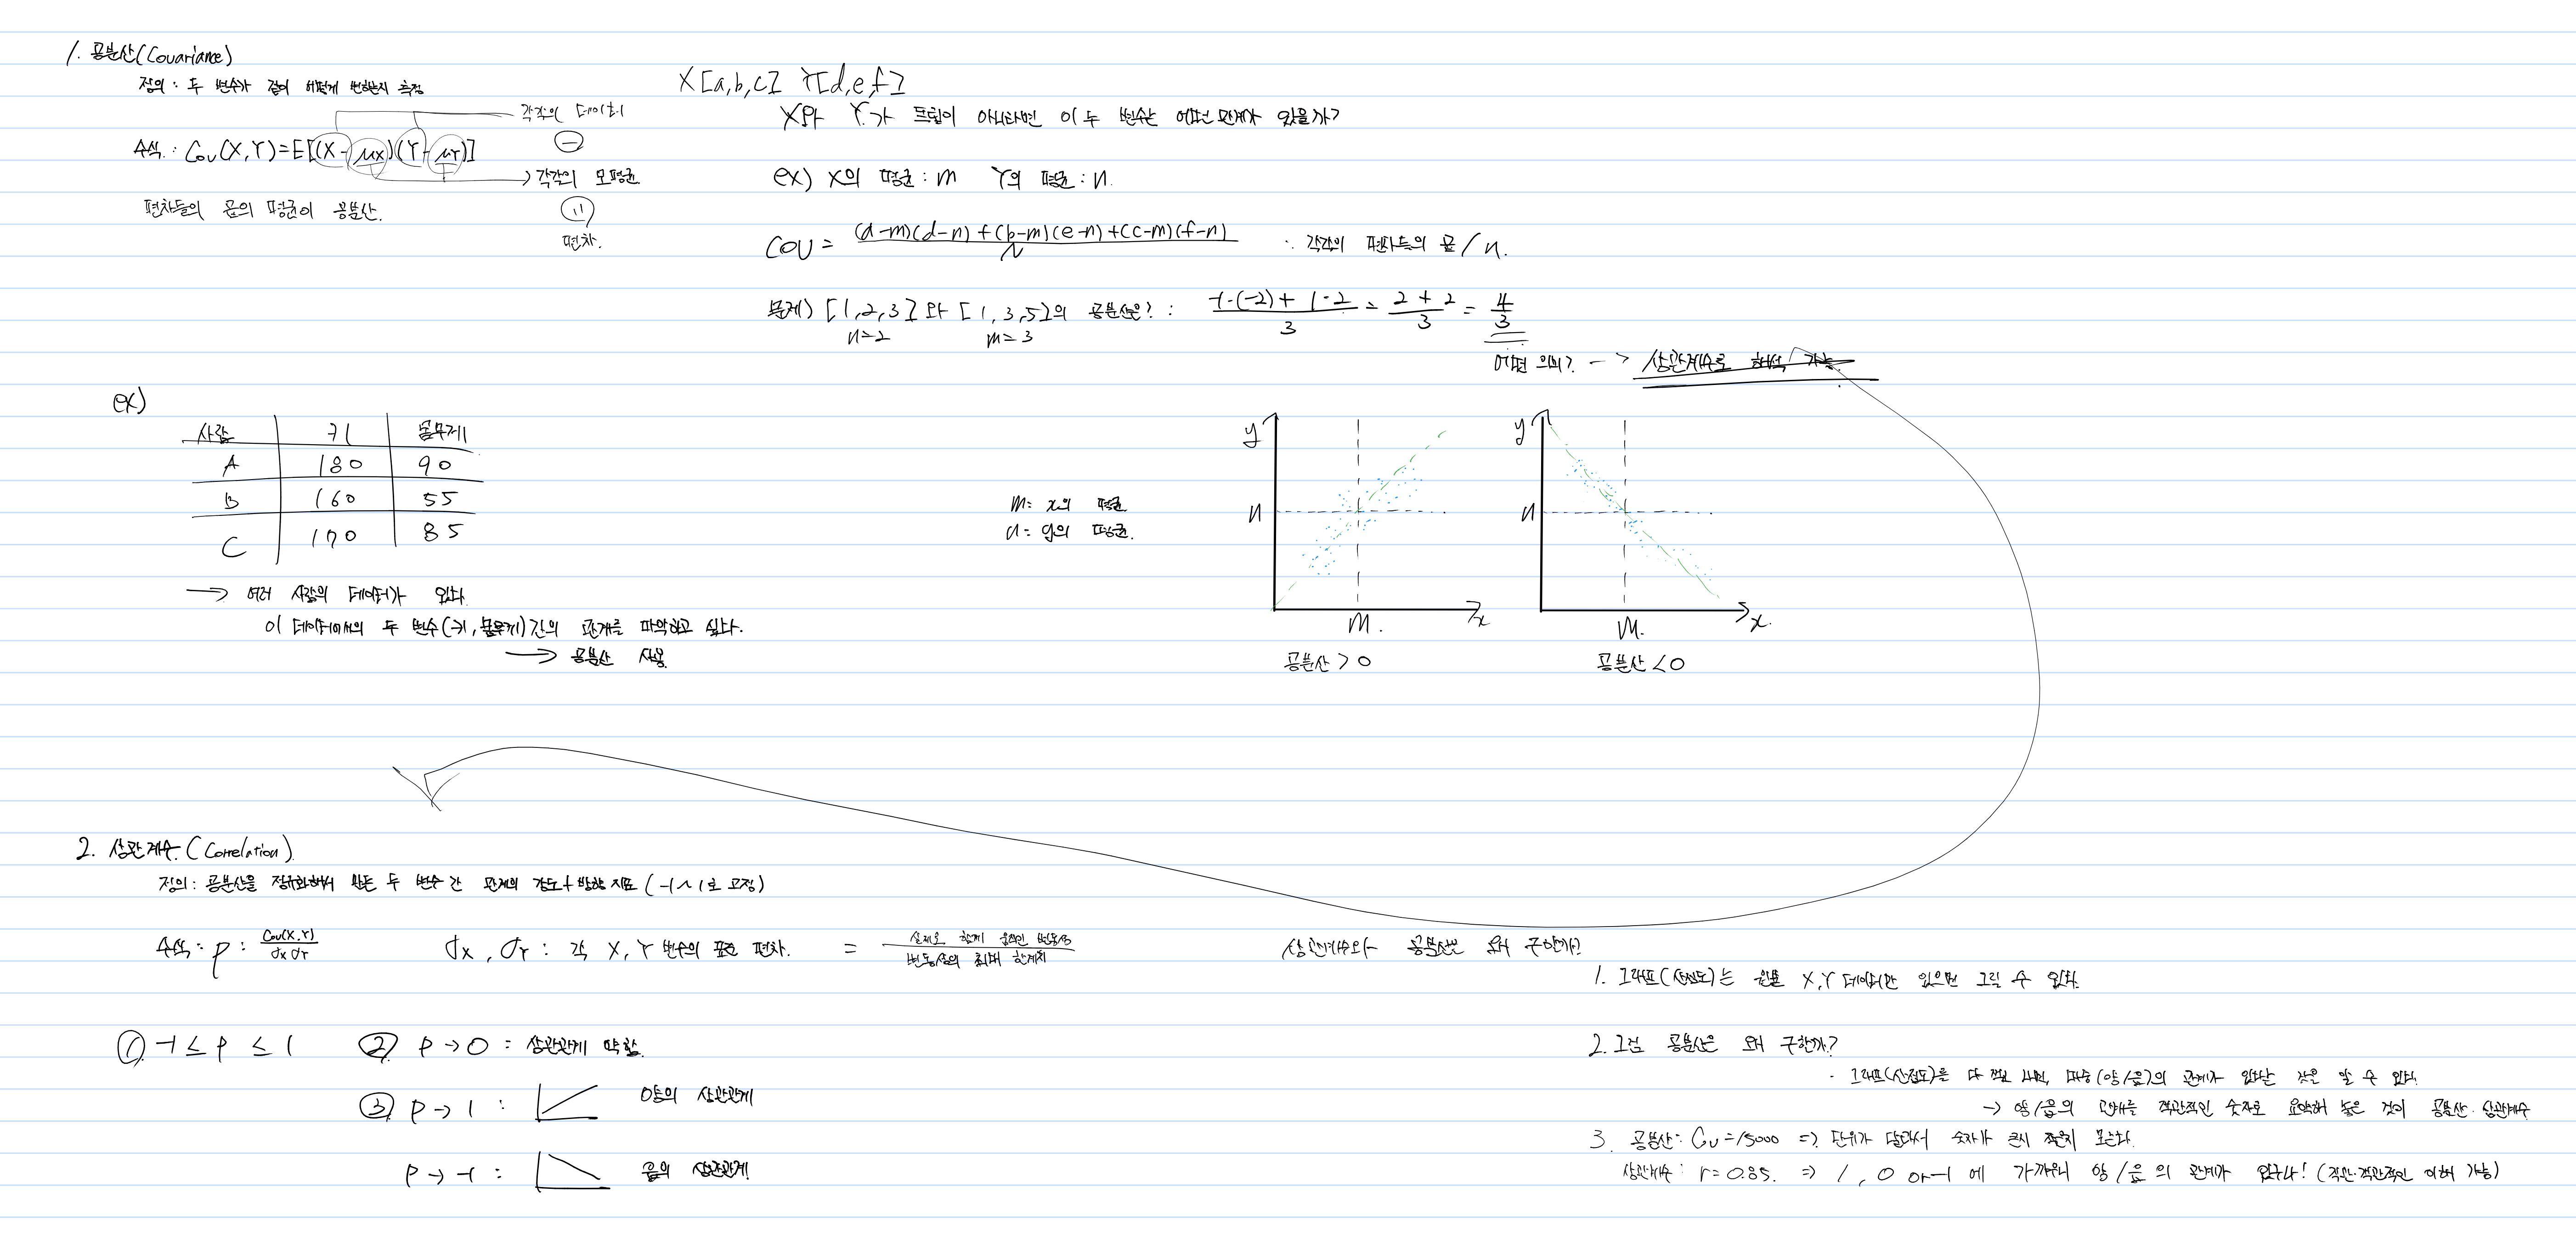 1. 공분산(Covariance)
정의 : 두 변수가 같이 어떻게 변하는지 측정
각각의 데이터
수식 : Cov(X,Y)=E[(X-μX)(Y-μY)]
각각의 모평균
편차들의 곱의 평균이 공분산.
편차.
X[a,b,c] Y[d,e,f]
X와 Y가 독립이 아니라면 이 두 변수는 어떤 관계가 있을까?
ex) X의 평균 : m Y의 평균 : n.
COV = (a-m)(d-n)+(b-m)(e-n)+(c-m)(f-n) / N ∴ 각각의 편차들의 곱 / n.
문제) [1,2,3]와 [1,3,5]의 공분산은? : -1·(-2)+1·2 / 3 = 2+2 / 3 = 4/3
n=2 m=3
어떤 의미? -> 상관계수로 해석 가능.
ex)
사람 키 몸무게
A 180 90
B 160 55
C 170 85
→ 여러 사람의 데이터가 있다.
이 데이터에서의 두 변수(키, 몸무게)간의 관계를 파악하고 싶다.
→ 공분산 사용
m= x의 평균
n= y의 평균.
y n m. x
공분산 > 0
y n m. x.
공분산 < 0
2. 상관계수 (Correlation)
정의 : 공분산을 정규화해서 만든 두 변수 간 관계의 강도+방향 지표 (-1~1로 고정)
수식 : p : Cov(X,Y) / σx σY σx, σY : 각 X, Y 변수의 표준 편차. = 실제로 함께 움직인 변동성 / 변동성의 최대 한계치
① -1 ≤ p ≤ 1 ② p → 0 : 상관관계 약함.
③ p → 1 : 양의 상관관계
p → -1 : 음의 상관관계
상관계수와 공분산은 왜 구할까?
1. 그래프(산점도)는 원본 X,Y 데이터만 있으면 그릴 수 있다.
2. 그럼 공분산은 왜 구할까?
· 그래프(산점도)를 다 찍고 나면, 대충(양/음)의 관계가 있다는 것은 알 수 있다.
→ 양/음의 관계를 객관적인 숫자로 요약해 놓은 것이 공분산·상관계수
3. 공분산 : Cov=15000 => 단위가 달라서 숫자가 큰지 작은지 모른다.
상관계수 : r=0.85. => 1, 0 or -1 에 가까우니 양/음의 관계가 있구나! (직관·객관적인 이해 가능)